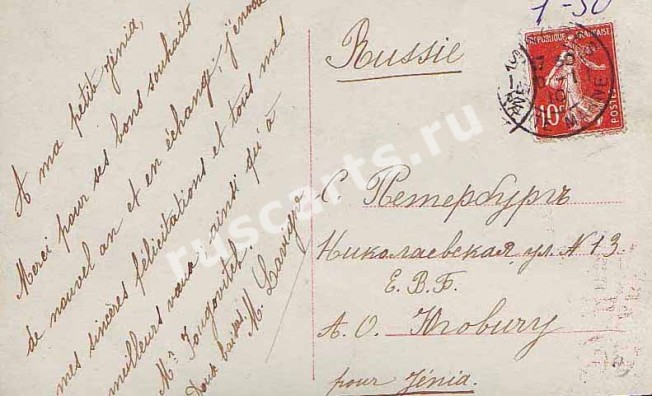 A ma petite Jénia,
Merci pour ses bons souhaits
de nouvel an et en échange, j'envoie
mes sincères félicitations et tous mes
meilleurs vœux ainsi qu'à
Mr
Doux baisers. M. Lavigne
1-50
Russie
REPUBLIQUE FRANÇAISE
10c
POSTES
MARNE
С. Петербургъ
Николаевская ул. N 13.
Е. В. Б.
А. О.
pour Jénia.
ruscarts.ru